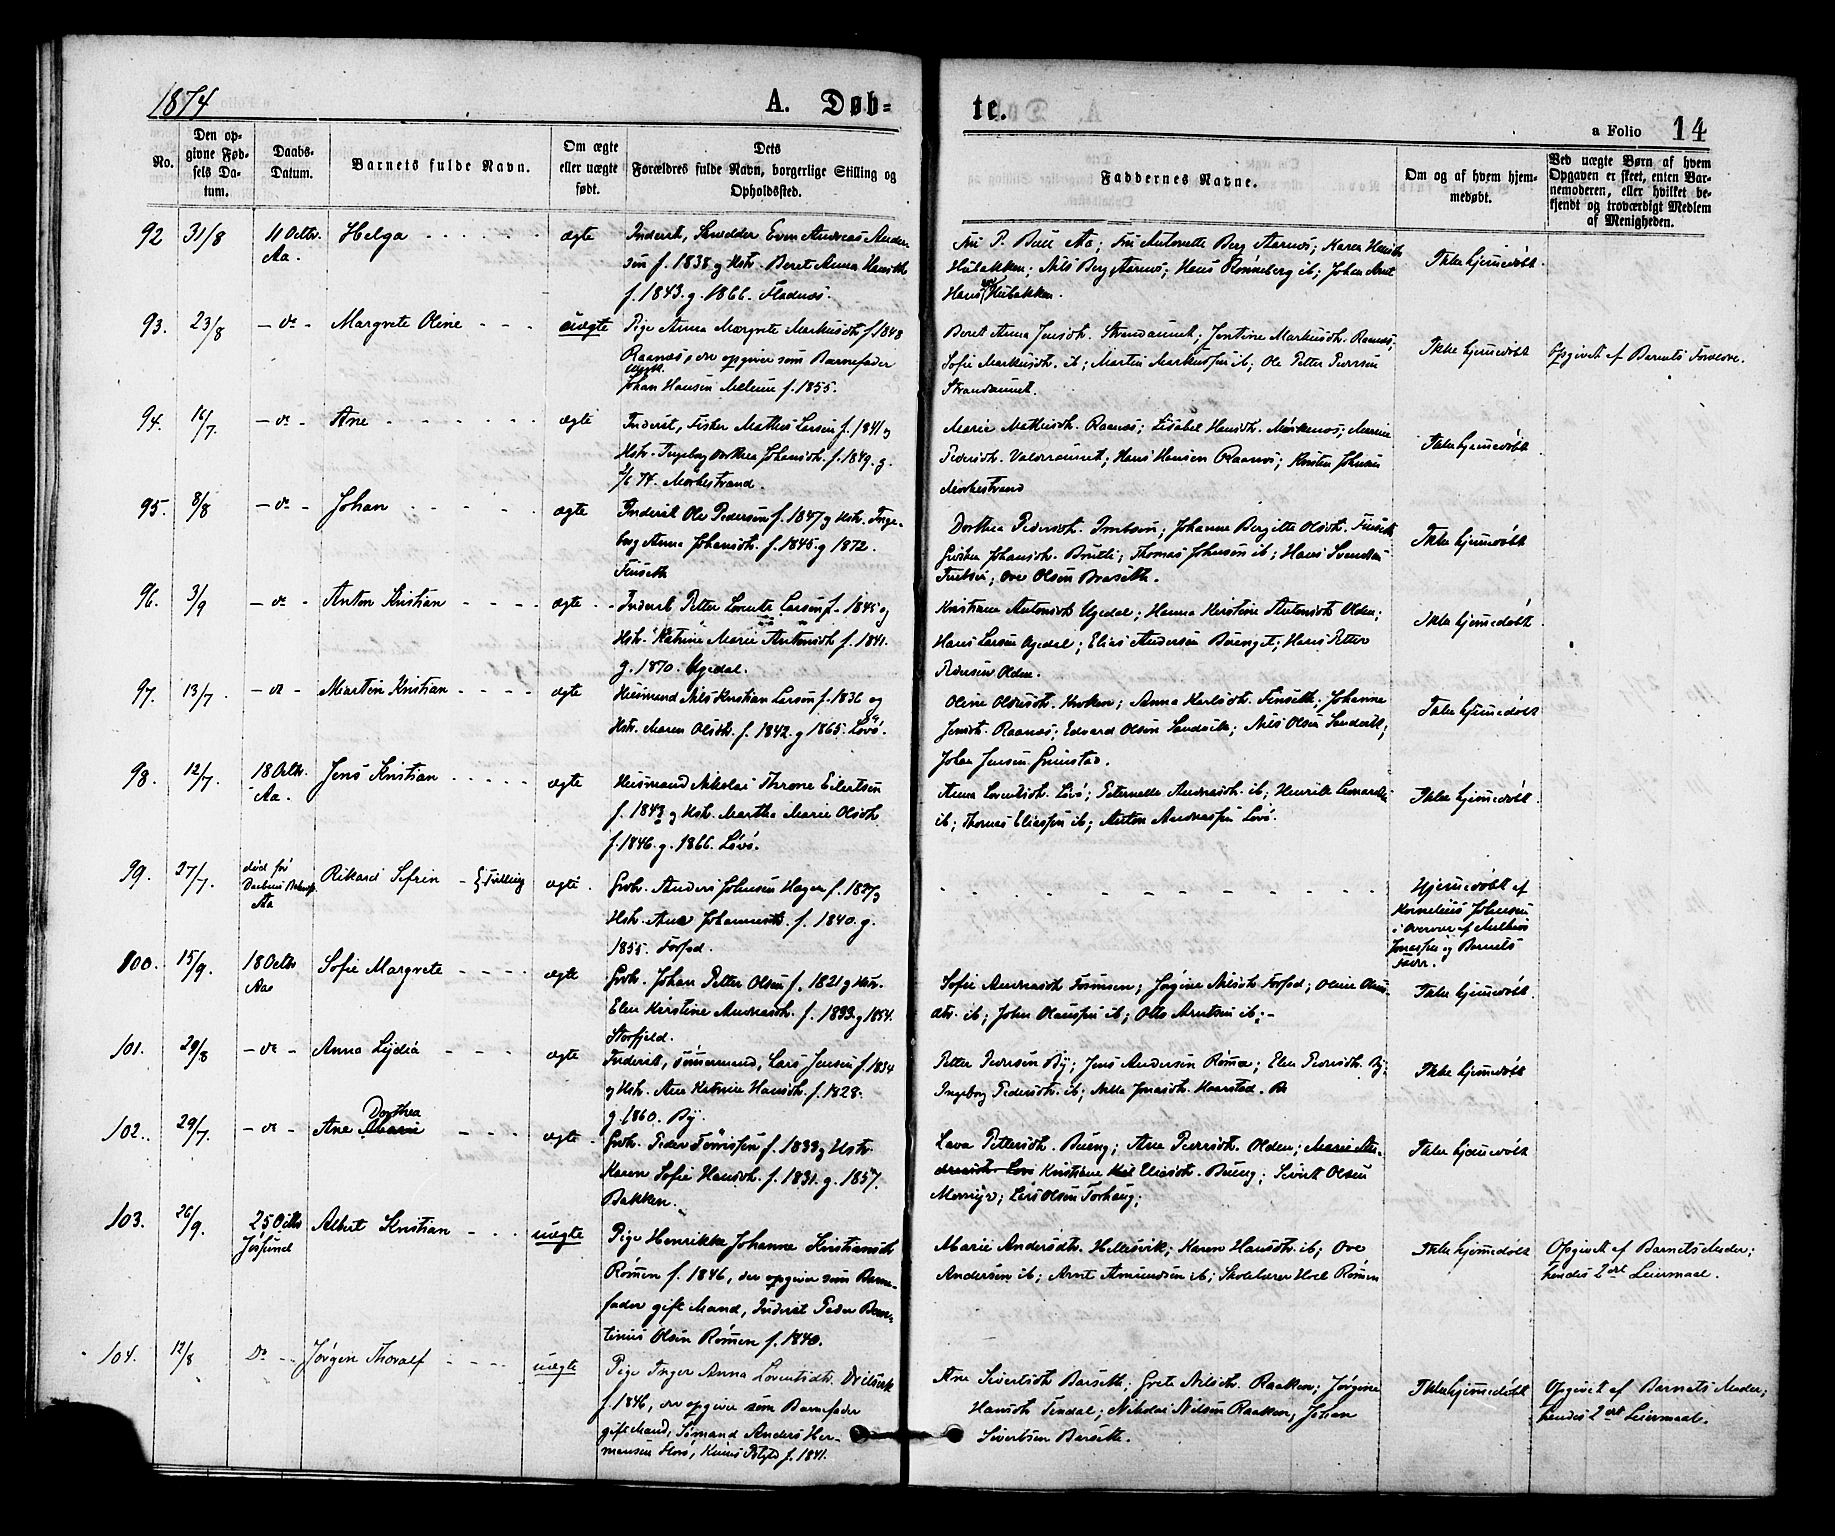 1874
A. Døb-
te.
a Folio 14
No.
Den op-
givne Fød-
sels Da-
tum.
Daabs-
Datum.
Barnets fulde Navn.
Om ægte
eller uægte
født.
Dets
Forældres fulde Navn, borgerlige Stilling og
Opholdssted.
Faddernes Navne.
Om og af hvem hjem-
medøbt.
Ved uægte Børn af hvem
Opgaven er skeet, enten Bar-
nemoderen, eller hvilket be-
kjendt og troværdigt Medlem
af Menigheden.
92 31/8 11 Octbr. Aa. Helga ægte
Inderst, Smedder Even Andreas Ander-
sen f. 1838 g Hstr. Beret Anna Hansdt.
f. 1843. g. 1866. Fladnæs.
Fru P. Buee Aa; Fru Antonette Berg Aarnæs; Karen Hansdtr
Hubakken; Nils Berg Aarnæs; Hans Rønneberg ib; Johan Arnt
Hans Hubakken.
Ikke hjemmedøbt.
93. 23/8 - do - Margrete Oline uægte
Pige Anna Margrete Markusdt. f. 1848
Raanæs, der opgiver som Barnefader
Ungk.
Johan Hansen Melum f. 1855.
Beret Anna Jensdt. Strandaunet; Jentine Markusdt. Raanæs;
Sofie Markusdt. ib; Martin Markussen ib; Ole Petter
Strandaunet.
Ikke hjemmedøbt
Opgivet af Barnets Forældre.
94. 16/7. - do - Ane ægte
Inderst, Fisker Mathias Larsen f. 1841 g
Hstr. Ingeborg Dorthea Johansdt. f. 1849. g.
2/6 74. Mørkestrand.
Marie Mathisdt. Raanæs; Lisabet Hansdt. Mørkenæs; Marie
Pedersdt. Valseraunet; Hans Hansen Raanæs; Kristen Johnsen
Morkestrand
Ikke hjemmedøbt
95. 8/8 - do - Johan ægte
Inderst Ole Pedersen f. 1847 g Hstr. Inge-
borg Anna Johansdt. f. 1845. g 1872.
Finseth
Dorthea Pedersdt. Johanne Birgitte Olsdt. Finseth,
Johansdt. Thomas Johnsen ib; Hans
Ove Olsen Braseth.
Ikke hjemmedøbt
96. 3/9 - do - Anton Kristian ægte
Inderst Petter Lorents Larsen f. 1845 g
Hstr. Katrine Marie Antonsdt. f. 1841.
g. 1870. Ugedal.
Kristiane Antonsdt. Ugedal; Hanna Kirstine Antonsdt. Olden;
Hans Larsen Ugedal; Elias Andersen Buenget; Hans Petter
Pedersen Olden.
Ikke hjemmedøbt.
97. 13/7. - do - Martin Kristian ægte
Husmand Nils Kristian Larsen f. 1836 g
Hstr. Maren Olsdt. f. 1842. g 1865. Løvø.
Oline Olsdt. Kroken; Anna Karlsdt. Finseth; Johanne
Jensdt. Raanæs; Edvard Olsen Sandvik; Nils Olsen Sandvik;
Johan Jensen Grinstad.
Ikke hjemmedøbt
98. 12/7. 18 Octbr. Aa. Jens Kristian ægte
Husmand Nikolai Throne Eilertsen
f. 1843 g Hstr. Martha Marie Olsdt.
f. 1846. g. 1866. Løvø.
Anna Lorentsdt. Løvø; Peternelle Andreasdt. ib; Henrik
ib; Thomas Eliassen ib; Anton Andreassen Løvø.
Ikke hjemmedøbt.
99. 27/7. død før
Daabens
Aa Rikard Sefrin - Tvilling ægte.
Grbr. Anders Johnsen Hagen f. 1827 g
Hstr. Ane Johannesdt. f. 1840. g.
1855. Forfod.
Hjemmedøbt af
Kornelius Johnsen
i Overvær af Mathias
Jonassen og Barnets
Fader.
100. 15/9. 18 Octbr Aa Sofie Margrete ægte
Grbr. Johan Petter Olsen f. 1821 g Hstr.
Elen Kirstine Andreasdt. f. 1833. g 1854.
Storfjeld.
Sofie Andreasdt. Jørgine Nilsdt. Forfod; Oline
dtr. ib; John Olaussen ib; Otto Arntsen ib; -
Ikke hjemmedøbt.
101. 29/8 - do - Anna Lydia ægte
Inderst, Tømmermand, Lars Jensen f. 1834
g Hstr. Ane Katrine Hansdt. f. 1828.
g. 1860. By.
Petter Pedersen By; Jens Andersen Rømen; Elen Pedersdt. By;
Ingeborg Pedersdt. ib; Jonasdt. Haarstad.
Ikke hjemmedøbt
102. 29/7. - do - Ane Dorthea
Marie ægte.
Grbr. Peder Tørrissen f. 1833 g Hstr.
Karen Sofie Hansdt. f. 1831. g. 1857.
Bakken.
Lava Pettersdt. Bueng; Ane Pedersdt. Olden; Marie An-
dreasdt. Løvø Kristiane Eliasdt. Bueng; Sivert Olsen
Lars Olsen Torhaug;
Ikke hjemmedøbt
103. 26/9. 25 Octbr Jøssund Albert Kristian uægte
Pige Henrikke Johanne Kristiansdt.
Rømen f. 1846, der opgiver som Barne-
fader gift Mand, Inderst Peder Ben-
tinius Olsen Rømen f. 1840.
Marie Andersdt. Hellesvik; Karen Hansdt. ib; Ove
Andersen ib; Arnt Amundsen ib; Skolelærer Hoel Rømen
Ikke hjemmedøbt
Opgivet af Barnets Moder;
hendes 2det Leiermaal.
104. 12/8 Do Jørgen Thoralf uægte
Pige Inger Anna Lorentsdt.
f. 1846, der opgiver som Barnefader
gift Mand, Sømand Anders Her-
mansen Flors, f. 1841.
Ane Sivertsdt. Barseth; Grete Nilsdt. Raaken; Jørgine
Hansdt. Teodal; Nikolai Nilsen Raaken; Johan
Sivertsen Barseth.
Ikke hjemmedøbt
Opgivet af Barnets Moder;
hendes 2det Leiermaal.